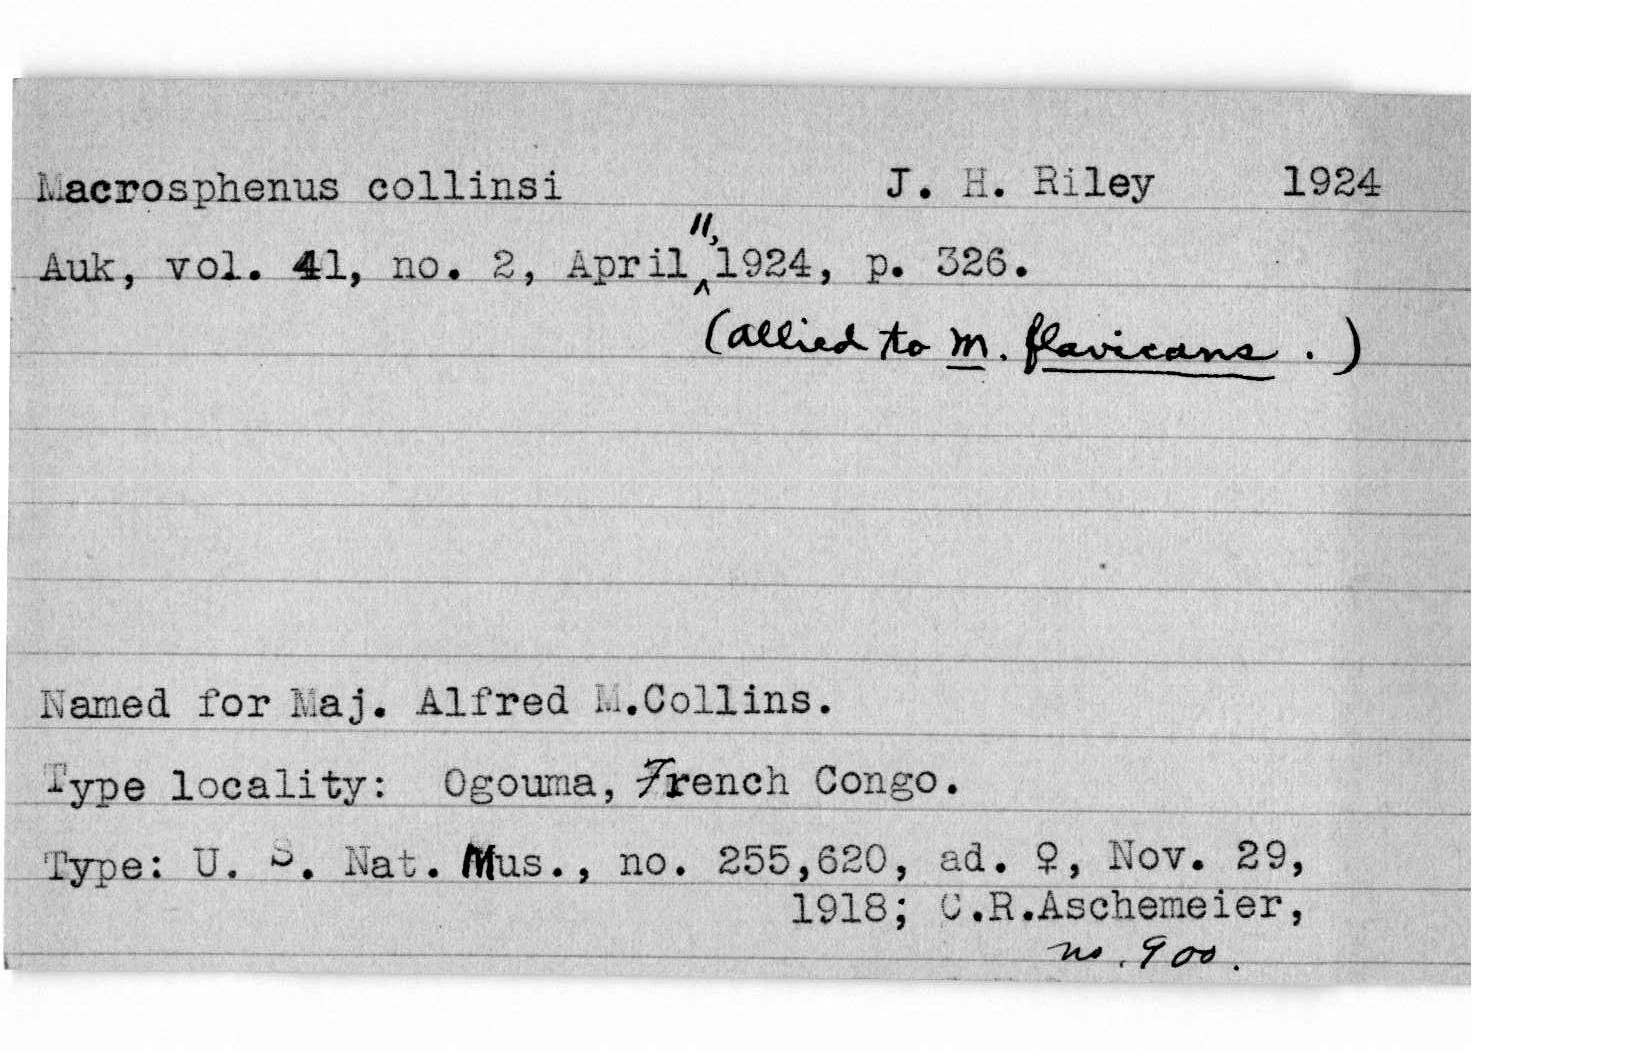 Macrosphenus collinsi J. H. Riley 1924
Auk, vol. 41, no. 2, April 11, 1924, p. 326.
(allied to M. flavicans.)
Named for Maj. Alfred M.Collins.
Type locality: Ogouma, French Congo.
Type: U. S. Nat. Mus., no. 255,620, ad. ♀, Nov. 29,
1918; C.R.Aschemeier,
no. 900.